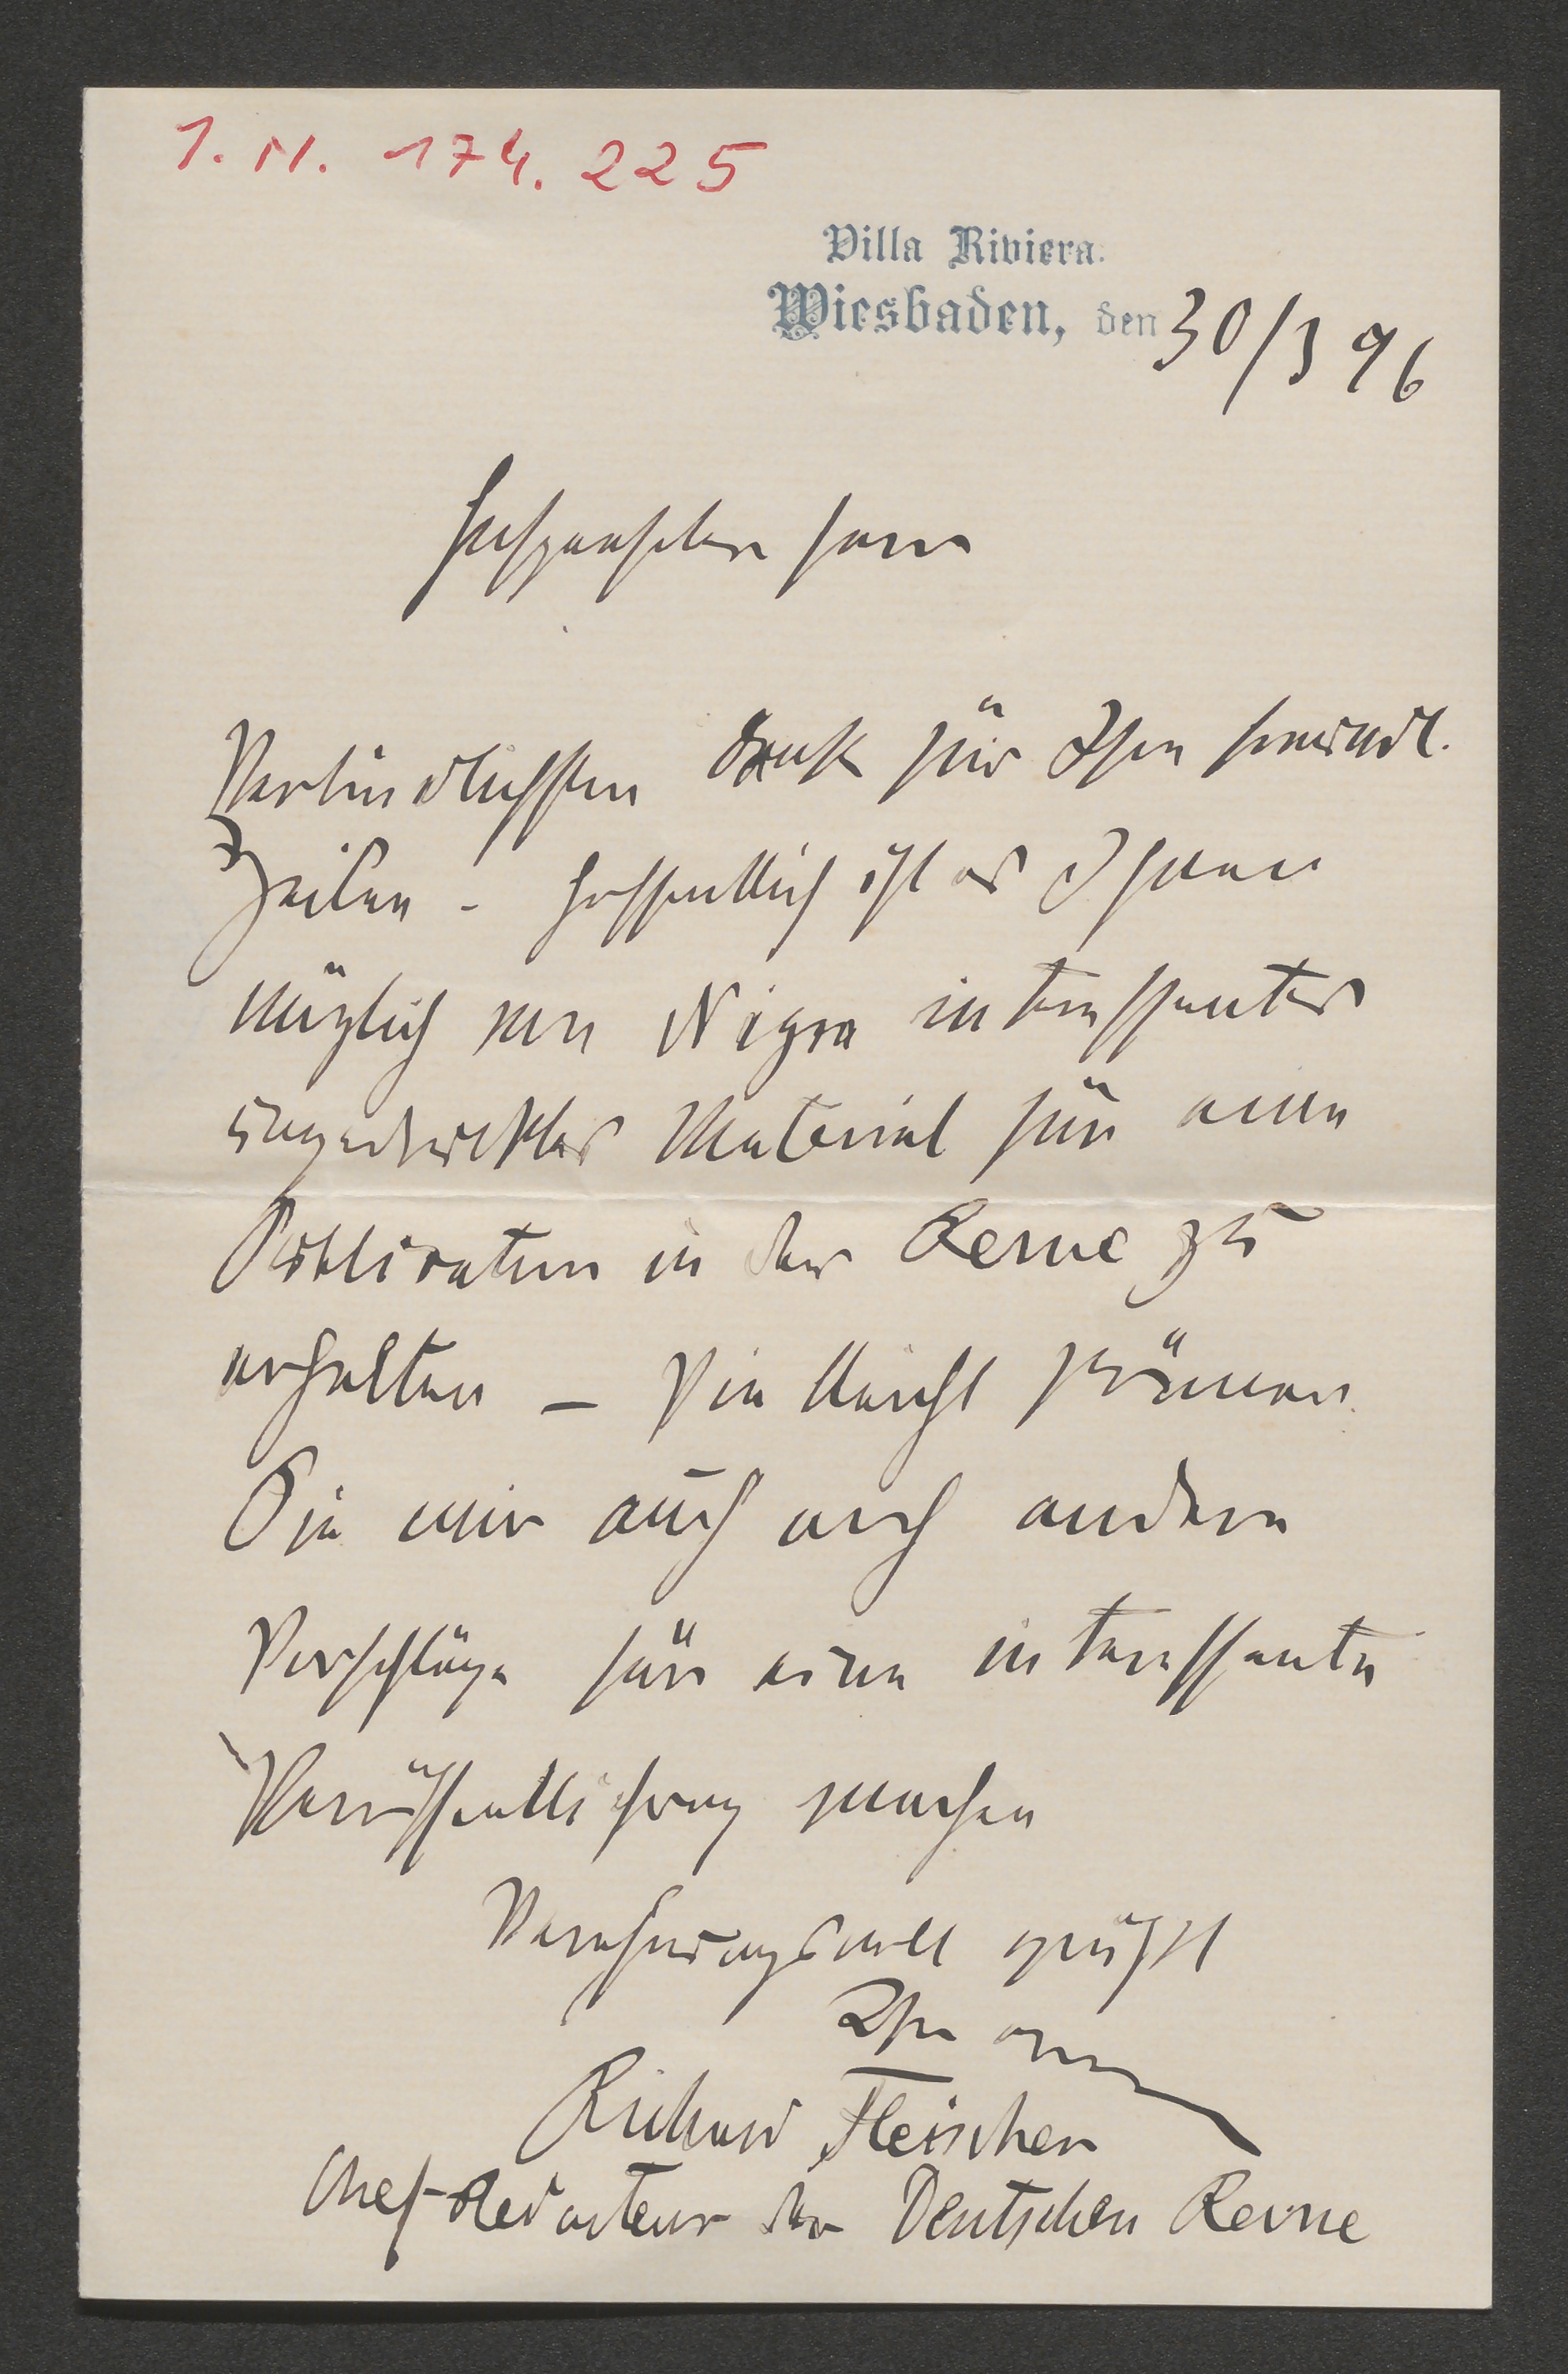 I. N. 174.225
Villa Riviera.
Wiesbaden, den 30/3 96
Hochgeehrter Herr
Verbindlichsten Dank für Ihre freundl.
Zeilen - hoffentlich ist es Ihnen
möglich von Nigra interessantes
ungedrucktes Material für eine
Publication in der Revue zu
erhalten – Vielleicht können
Sie mir auch noch andere
Vorschläge für eine interessante
Veröffentlichung machen
Verehrungsvoll grüßt
Ihr
Richard Fleischer
Chef-Redacteur der Deutschen Revue